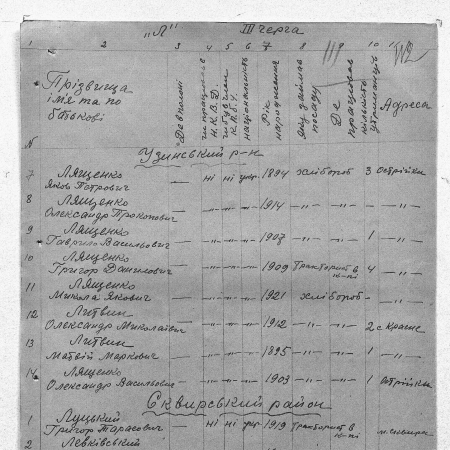 "Л" III черга
1 2 3 4 5 6 7 8 9 10 11
Прізвища
імє та по
батькові
Де в полоні
чи працював в Н.К.В.Д.
чи був член К.М.б.У.
національність
Рік народження
Яку займав посаду
Де працював
кількість утриманців
Адреса
№
Узинський р-н
7 Лященко
Яків Петрович — ні ні укр. 1894 хлібороб 3 Острійки
8 Лященко
Олександр Прокопович — -"- -"- -"- 1914 -"- -"- - -"-
9 Лященко
Гаврило Васильович — -"- -"- -"- 1907 -"- -"- 1 -"-
10 Лященко
Григор Данилович — -"- -"- -"- 1909 Тракторист в 4 -"-
11 Лященко
Микола Якович — -"- -"- -"- 1921 хлібороб - -"-
12 Литвин
Олександр Миколаївич — -"- -"- -"- 1912 -"- -"- 2 с Красне
13 Литвин
Матвій Маркович — -"- -"- -"- 1895 -"- -"- 1 -"-
14 Лященко
Олександр Васильович — -"- -"- -"- 1903 -"- -"- 1 Острійки
Сквирський район
1 Луцький
Григор Тарасович — ні ні укр 1919 Тракторист в м. Сквира
2 Левківський